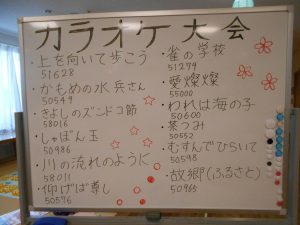 カラオケ大会
上を向いて歩こう
51628
かもめの水兵さん
50549
きよしのズンドコ節
58016
しゃぼん玉
50986
川の流れのように
58011
仰げば尊し
50576
・雀の学校
51279
・愛燦燦
55000
・われは海の子
50600
・茶つみ
50552
・むすんでひらいて
50598
・故郷(ふるさと)
50965